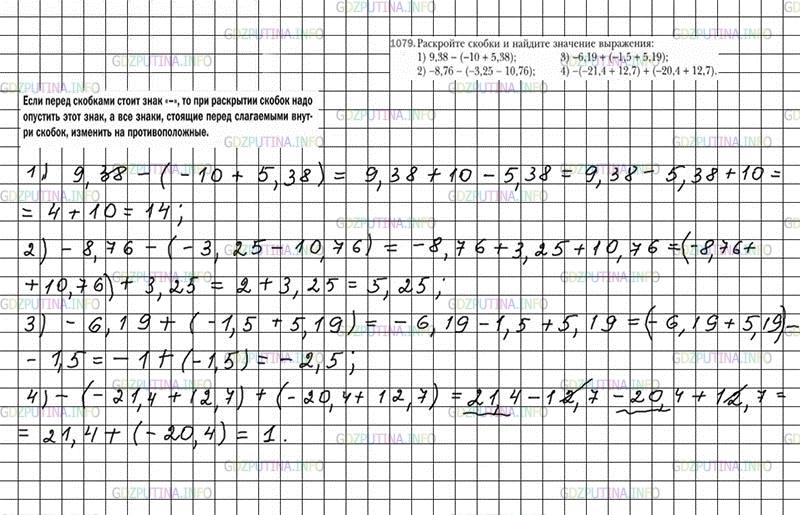 GDZPUTINA.INFO
1079. Раскройте скобки и найдите значение выражения:
1) 9,38 − (−10 + 5,38); 3) −6,19 + (−1,5 + 5,19);
2) −8,76 − (−3,25 − 10,76); 4) −(−21,4 + 12,7) + (−20,4 + 12,7).
Если перед скобками стоит знак «−», то при раскрытии скобок надо
опустить этот знак, а все знаки, стоящие перед слагаемыми внут-
ри скобок, изменить на противоположные.
1) 9,38 − (−10 + 5,38) = 9,38 + 10 − 5,38 = 9,38 − 5,38 + 10 =
= 4 + 10 = 14;
2) −8,76 − (−3,25 − 10,76) = −8,76 + 3,25 + 10,76 = (−8,76 +
+10,76) + 3,25 = 2 + 3,25 = 5,25;
3) −6,19 + (−1,5 + 5,19) = −6,19 − 1,5 + 5,19 = (−6,19 + 5,19) −
− 1,5 = −1 + (−1,5) = −2,5;
4) −(−21,4 + 12,7) + (−20,4 + 12,7) = 21,4 − 12,7 − 20,4 + 12,7 =
= 21,4 + (−20,4) = 1.